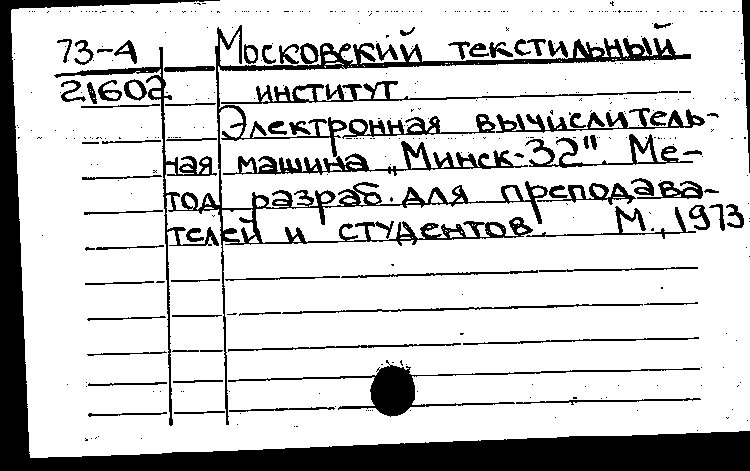 73-4 Московский текстильный
21602 институт
Электронная вычислитель-
ная машина „Минск-32". Ме-
тод. разраб. для преподава-
телей и студентов. М., 1973